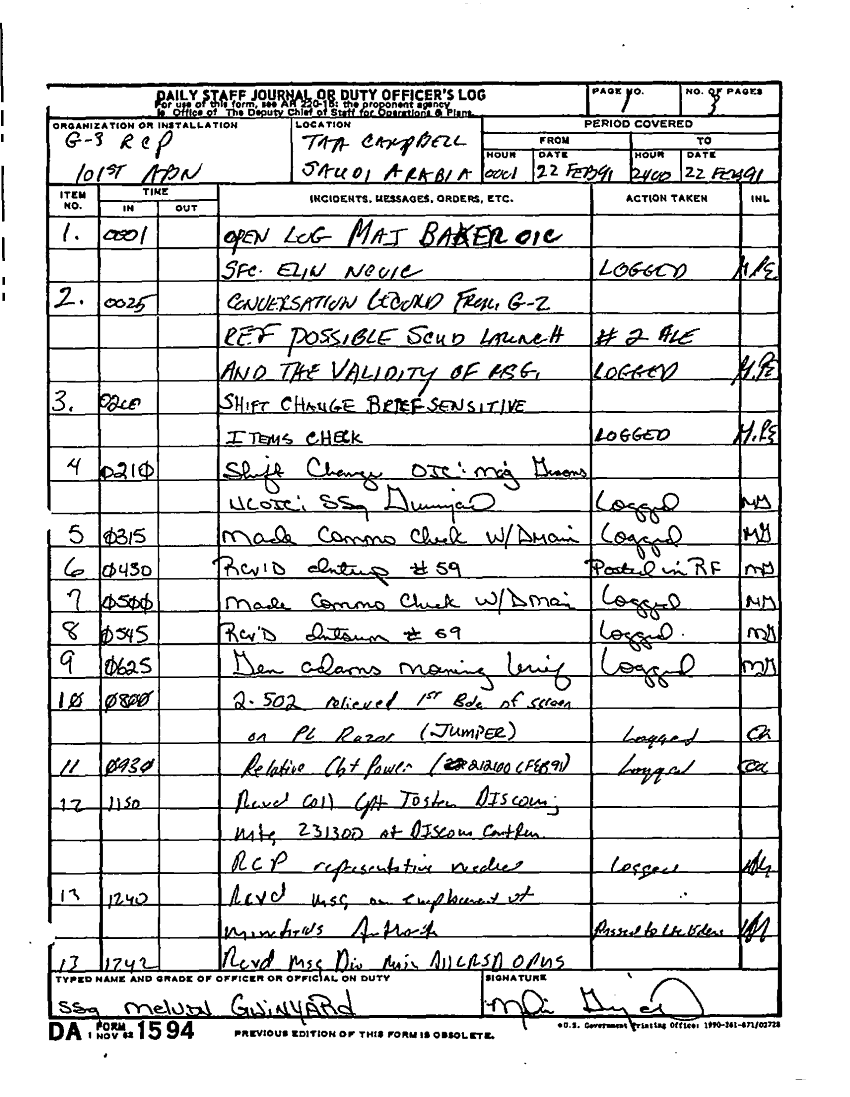 DAILY STAFF JOURNAL OR DUTY OFFICER'S LOG
For use of this form, see AR 220-15; the proponent agency
is Office of The Deputy Chief of Staff for Operations & Plans.
PAGE NO.
1
NO. OF PAGES
3
ORGANIZATION OR INSTALLATION
G-3 RCP
101ST ABN
LOCATION
TAA CAMPBELL
SAUDI ARABIA
PERIOD COVERED
FROM TO
HOUR DATE HOUR DATE
0001 22 FEB91 2400 22 FEB91
ITEM NO. TIME IN OUT INCIDENTS, MESSAGES, ORDERS, ETC. ACTION TAKEN INL
1. 0001 OPEN LOG MAJ BAKER OIC
SFC. ELIN NCOIC LOGGED
2. 0025 CONVERSATION RECORD FROM G-2
REF POSSIBLE SCUD LAUNCH # 2 ALE
AND THE VALIDITY OF LOGGED
3. 0200 SHIFT CHANGE BRIEF SENSITIVE
ITEMS CHECK LOGGED
4 0210 Shift Change OIC: Maj
NCOIC: SSg Logged MG
5 0315 Made Commo Check W/DMain Logged MG
6 0430 Rcv'D # 59 Posted in RF MG
7 0500 Made Commo Check W/DMain Logged MG
8 0545 Rcv'D # 69 Logged. MG
9 0625 Gen Adams morning brief Logged MG
10 0800 2-502 relieved 1st Bde of screen
on PL Razor (JUMPER) Logged
11 0930 Relative Cbt Power (212100 CFEB91) Logged
12 1150 Rcvd call Cpt Foster DISCOM;
mtg 231300 at DISCOM
RCP representative needed Logged
13 1240 Rcvd msg on employment of
Passed to
13 1742 Rcvd msg Div Main
TYPED NAME AND GRADE OF OFFICER OR OFFICIAL ON DUTY
SSg Melvin GWINYARD
SIGNATURE
DA FORM 1 NOV 62 1594
PREVIOUS EDITION OF THIS FORM IS OBSOLETE.
U.S. Government Printing Office: 1990-261-871/02728